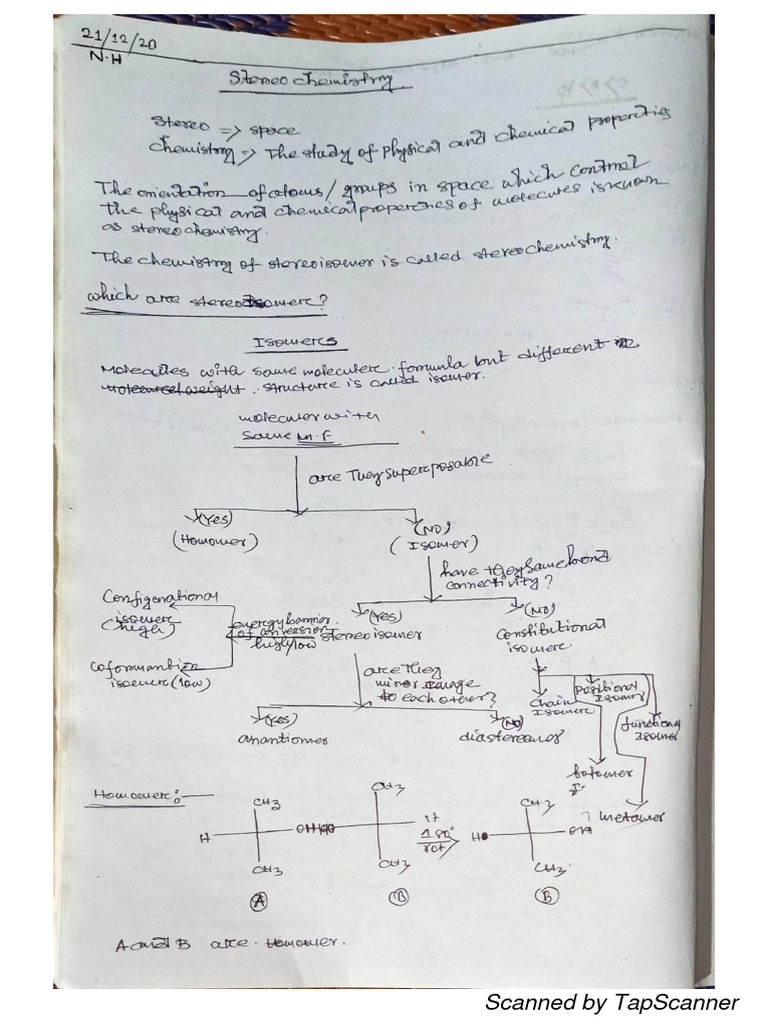 21/12/20
N.H
Stereo chemistry
Stereo => space
Chemistry => The study of physical and chemical properties
The orientation of atoms/ groups in space which control
the physical and chemical properties of molecules is known
as stereochemistry.
The chemistry of stereoisomer is called stereochemistry.
which are stereoisomer?
Isomers
Molecules with same molecular formula but different
structure is called isomer.
molecular with
same M.F
are They superposable
(Yes)
(NO)
(Homomer)
(Isomer)
have they same bond
connectivity?
(Yes)
(NO)
stereoisomer
Constitutional
isomer
energy barrier
of conversion
high/low
Configerational
isomer
(high)
isomer (low)
are they
mirror image
to each other?
(Yes)
(NO)
anantiomer
Chain
Isomer
Positional
Isomer
functional
Isomer
metamer
Homomer :-
CH3
CH3
CH3
H
OH
HO
it
180°
rot
HO
CH3
CH3
CH3
A
B
B
A and B are Homomer.
Scanned by TapScanner